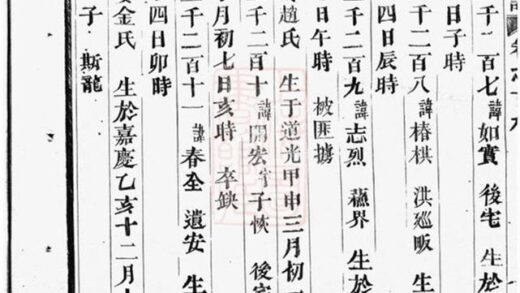 日子時
千二百七 諱如賓 後宅 生於
四日辰時
千二百八 諱椿棋 洪廵畈 生
日午時 被匪擄
千二百九 諱志烈 蘓界 生
趙氏 生于道光甲申三月初
千二百十 諱開宏 字子恢 後宅
月初七日亥時 卒缺
千二百十一 諱春全 遺安 生
四日卯時
金氏 生於嘉慶乙亥十二月
子 斯龍